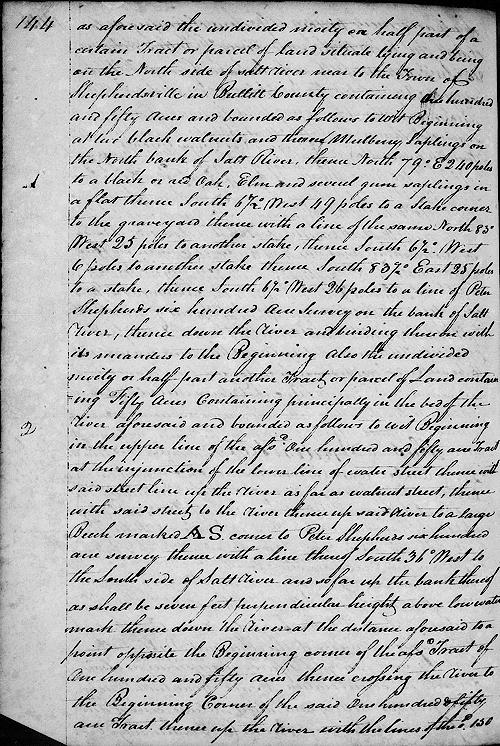 144
as aforesaid the undivided moity or half part of a
certain Tract or parcel of land situate lying and being
on the North side of salt river near to the Town of
Shepherdsville in Bullitt County containing One hundred
and fifty Acres and bounded as follows to wit Beginning
at two black walnuts and three Mulberry Saplings on
the North bank of Salt River, thence North 79° E 240 poles
to a black or red Oak, Elm and several gum saplings in
1
a flat thence South 6½° West 49 poles to a Stake corner
to the graveyard thence with a line of the same North 83°
West 25 poles to another stake, thence South 6½° West
6 poles to another stake thence South 83½° East 25 poles
to a stake, thence South 6½° West 26 poles to a line of Peter
Shepherds six hundred Acre Survey on the bank of Salt
River, thence down the River and binding thereon with
its meanders to the Beginning Also the undivided
moity or half part another Tract or parcel of Land contain
ing Fifty Acres Containing principally in the bed of the
2
River aforesaid and bounded as follows to wit Beginning
in the upper line of the afsd. One hundred and fifty acre Tract
at the injunction of the lower line of water street thence with
said street line up the River as far as walnut street, thence
with said street to the River thence up said River to a large
Beech marked AS corner to Peter Shepherds six hundred
acre survey thence with a line thereof South 36° West to
the South side of Salt River and so far up the bank thereof
as shall be seven feet perpendicular height above low water
mark thence down the River at the distance aforesaid to a
point opposite the Beginning corner of the afsd Tract of
One hundred and fifty acres thence crossing the River to
the Beginning Corner of the said One hundred & fifty
acre Tract. thence up the River with the lines of the sd. 150